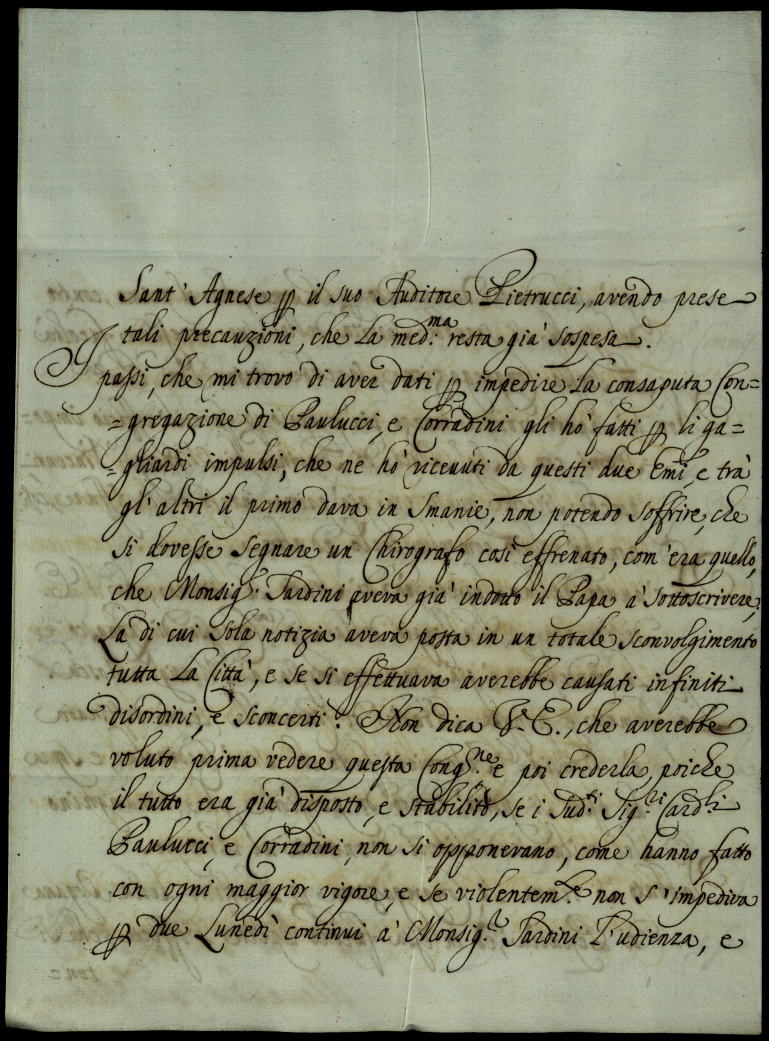 Sant' Agnese ꝑ il suo Auditore Pietrucci, avendo prese
tali precauzioni, che La med.ma resta già sospesa.
I passi, che mi trovo di aver dati ꝑ impedire La consaputa Con=
=gregazione di Paulucci, e Corradini gli hò fatti ꝑ li ga=
=gliardi impulsi, che ne hò ricevuti da questi due Emi, e trà
gl' altri il primo dava in Smanie, non potendo soffrire, che
si dovesse segnare un Chirografo così effrenato, com' era quello,
che Monsig.r Sardini aveva già indotto il Papa à sottoscrivere,
La di cui sola notizia aveva posta in un totale sconvolgimento
tutta La Città, e se si effettuava averebbe causati infiniti
disordini, e sconcerti. Non dica V. E., che averebbe
voluto prima vedere questa Cong.ne e poi crederla, poiche
il tutto era già disposto, e stabilito, se i Sud.ti Sig.ri Card.li
Paulucci, e Corradini, non si opponevano, come hanno fatto
con ogni maggior vigore, e se violentem.te non s' impediva
ꝑ due Lunedì continui à Monsig.r Sardini l'udienza, e